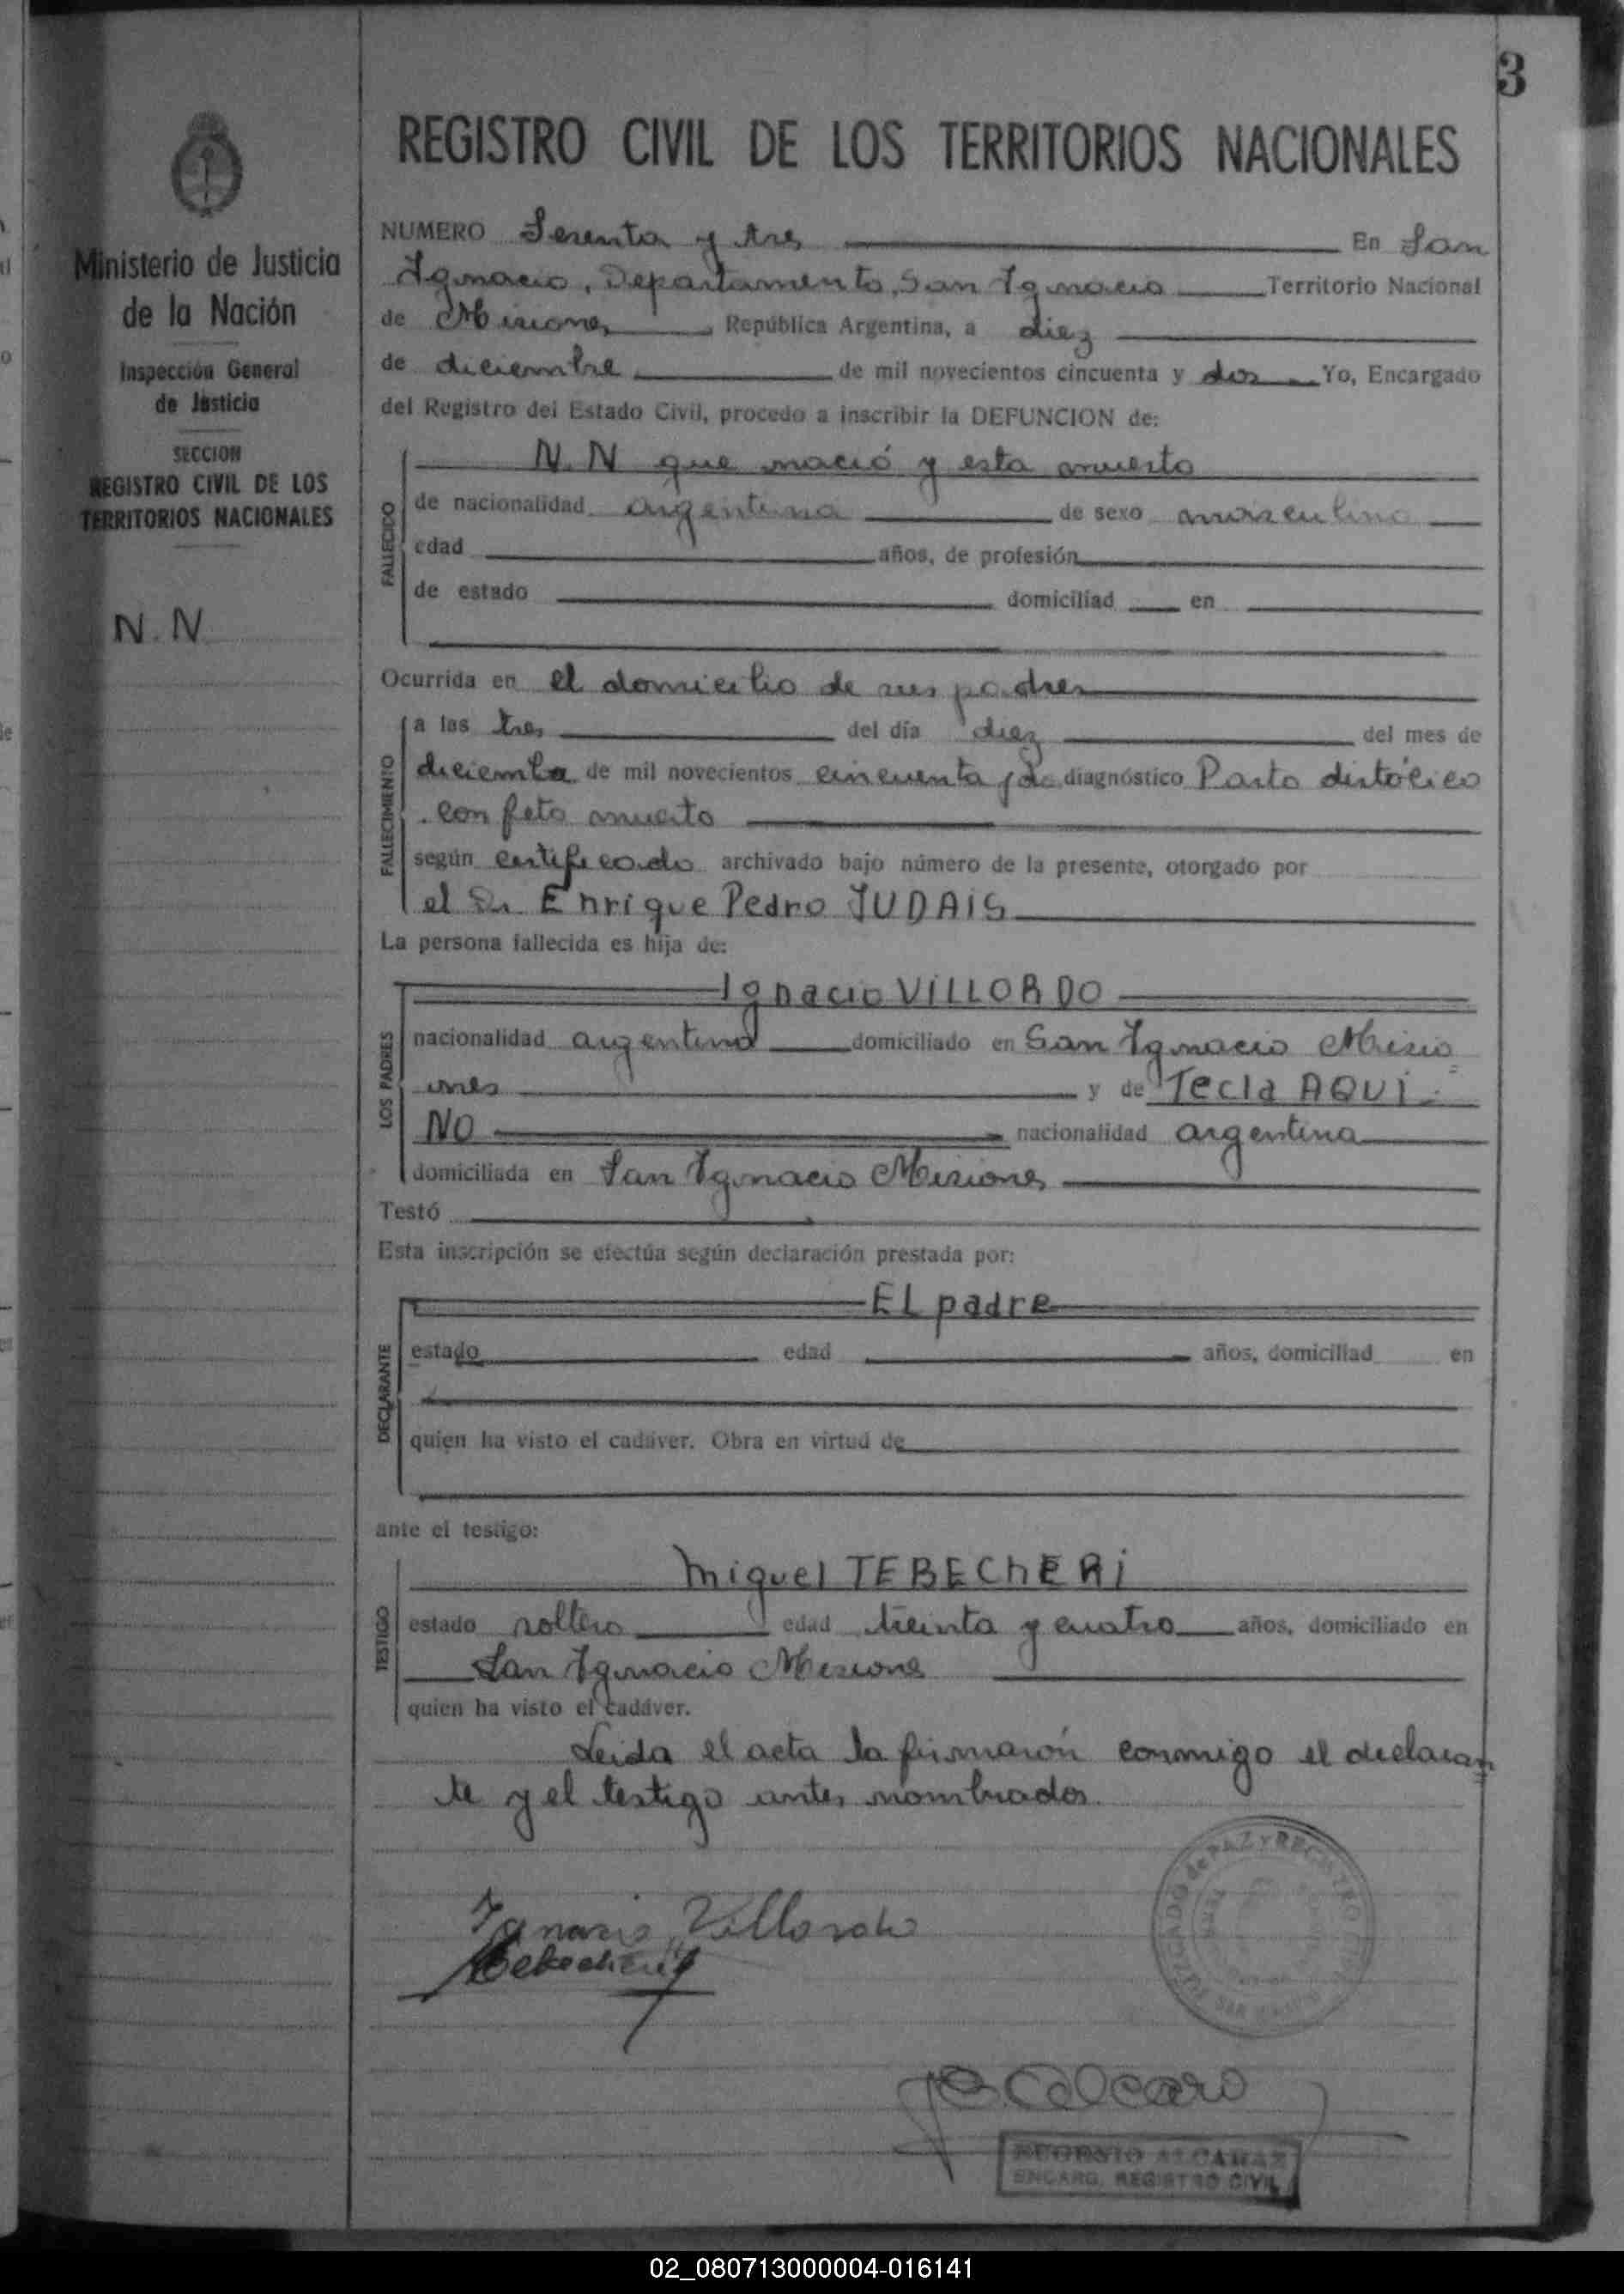 3
REGISTRO CIVIL DE LOS TERRITORIOS NACIONALES
Ministerio de Justicia
de la Nación
Inspección General
de Justicia
SECCION
REGISTRO CIVIL DE LOS
TERRITORIOS NACIONALES
N. N
NUMERO Sesenta y tres En San
Ignacio, Departamento San Ignacio Territorio Nacional
de Misiones, República Argentina, a diez
de diciembre de mil novecientos cincuenta y dos Yo, Encargado
del Registro del Estado Civil, procedo a inscribir la DEFUNCION de:
FALLECIDO
N. N que nació y esta muerto
de nacionalidad argentina de sexo masculino
edad años, de profesión
de estado domiciliad en
Ocurrida en el domicilio de sus padres
FALLECIMIENTO
a las tres del día diez del mes de
diciembre de mil novecientos cincuenta y dos diagnóstico Parto distócico
con feto muerto
según certificado archivado bajo número de la presente, otorgado por
el Dr Enrique Pedro JUDAIS
La persona fallecida es hija de:
LOS PADRES
Ignacio VILLORDO
nacionalidad argentina domiciliado en San Ignacio Misio
nes y de Tecla AQUI
NO nacionalidad argentina
domiciliada en San Ignacio Misiones
Testó
Esta inscripción se efectúa según declaración prestada por:
DECLARANTE
EL padre
estado edad años, domiciliad en
quien ha visto el cadáver. Obra en virtud de
ante el testigo:
TESTIGO
Miguel TEBECHERI
estado soltero edad treinta y cuatro años, domiciliado en
San Ignacio Misiones
quien ha visto el cadáver.
Leida el acta la firmarón conmigo el declaran
te y el testigo antes nombrados.
Ignacio Villordo
Tebecheri
JUZGADO de PAZ y REGISTRO CIVIL
SAN IGNACIO
EUGENIO ALCARAZ
ENCARG. REGISTRO CIVIL
02_080713000004-016141